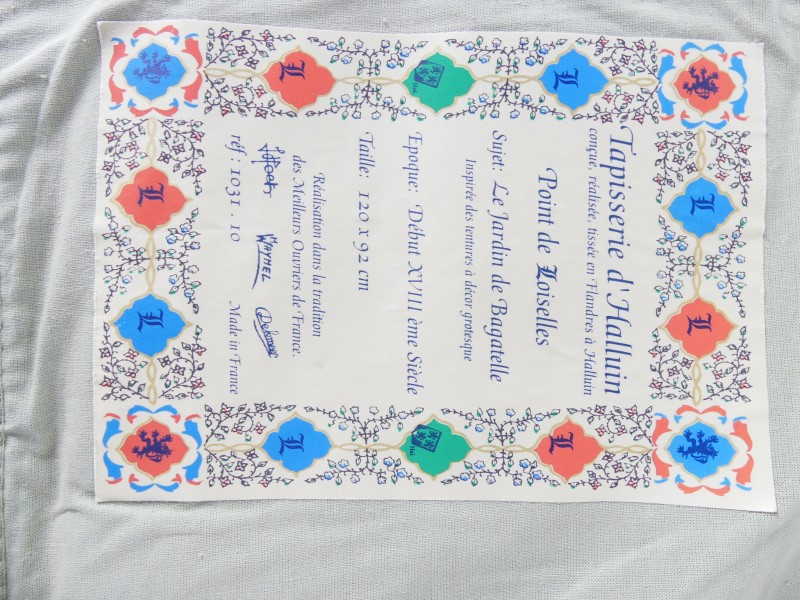 Tapisserie d'Halluin
conçue, réalisée, tissée en Flandres à Halluin
Point de Loiselles
Sujet: Le Jardin de Bagatelle
Inspirée des tentures à décor grotesque
Epoque: Début XVIII ème Siècle
Taille: 120 x 92 cm
Réalisation dans la tradition
des Meilleurs Ouvriers de France.
WAYMEL
réf : 1031 . 10 Made in France
L
L
L
L
L
L
L
L